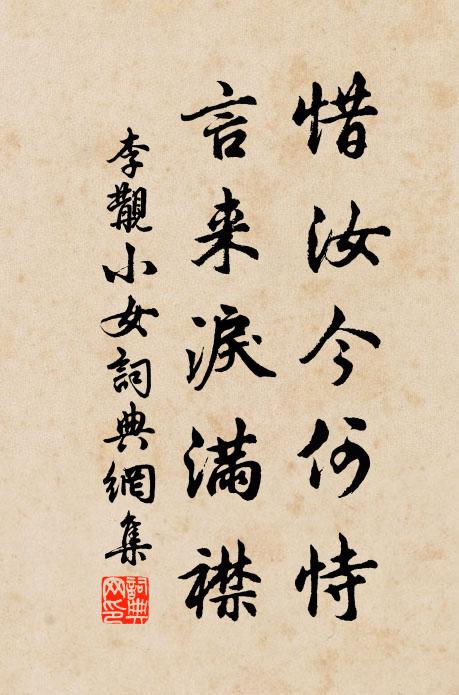 惜汝今何恃
言来淚滿襟
李覯小女詞典網集
詞典
网印